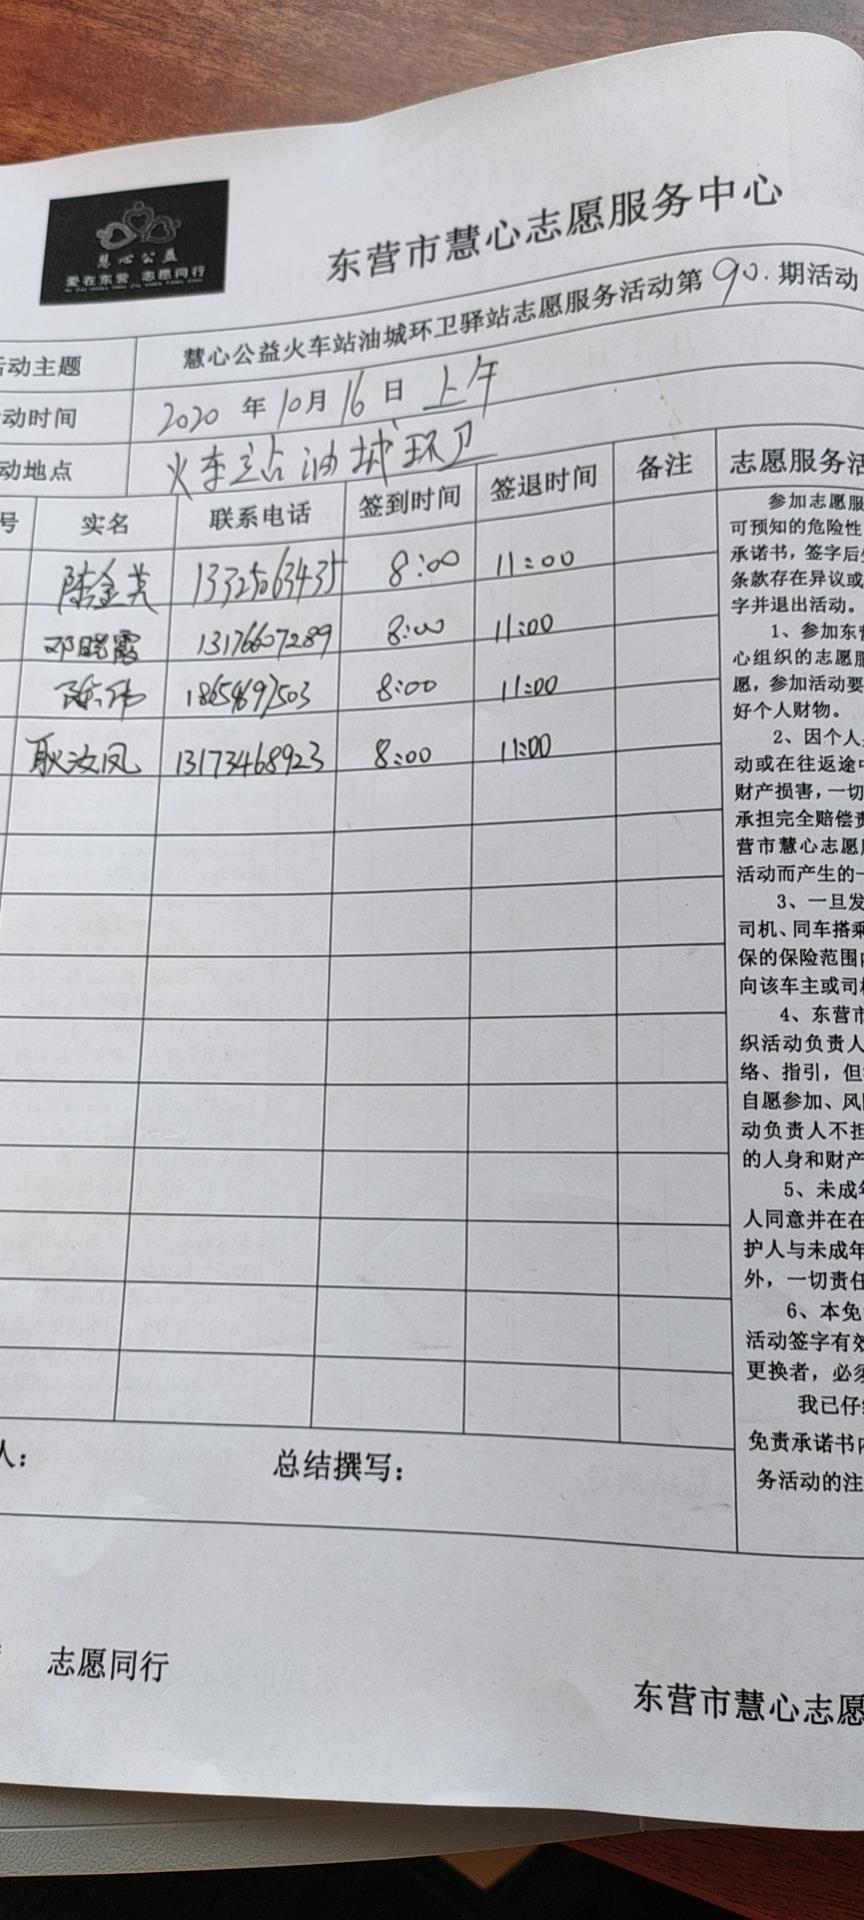 慧心公益
爱在东营 志愿同行
东营市慧心志愿服务中心
活动主题 慧心公益火车站油城环卫驿站志愿服务活动第90.期活动
动时间 2020年10月16日上午
动地点 火车站油城环卫
号 实名 联系电话 签到时间 签退时间 备注
陈金英 13325063435 8:00 11:00
邓晓霞 13176607289 8:00 11:00
18654697503 8:00 11:00
耿汝凤 13173468923 8:00 11:00
人： 总结撰写：
志愿服务活
参加志愿服
可预知的危险性
承诺书，签字后
条款存在异议或
字并退出活动。
1、参加东营
心组织的志愿服
愿，参加活动要
好个人财物。
2、因个人
动或在往返途中
财产损害，一切
承担完全赔偿责
营市慧心志愿
活动而产生的一
3、一旦发
司机、同车搭乘
保的保险范围内
向该车主或司机
4、东营市
织活动负责人
络、指引，但
自愿参加、风
动负责人不担
的人身和财产
5、未成年
人同意并在在
护人与未成年
外，一切责任
6、本免
活动签字有效
更换者，必须
我已仔细
免责承诺书内
务活动的注
志愿同行
东营市慧心志愿